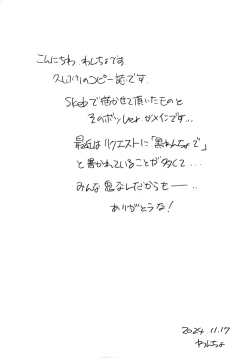 こんにちわ、わしちょです。
久しぶりのコピー誌です。
Skebで描かせて頂いたものと
そのボツver.がメインです…
最近はリクエストに「黒わしちょで」
と書かれていることが多くて…
みんな息なしだからも——…
ありがとうな!
2024.11.17
わしちょ